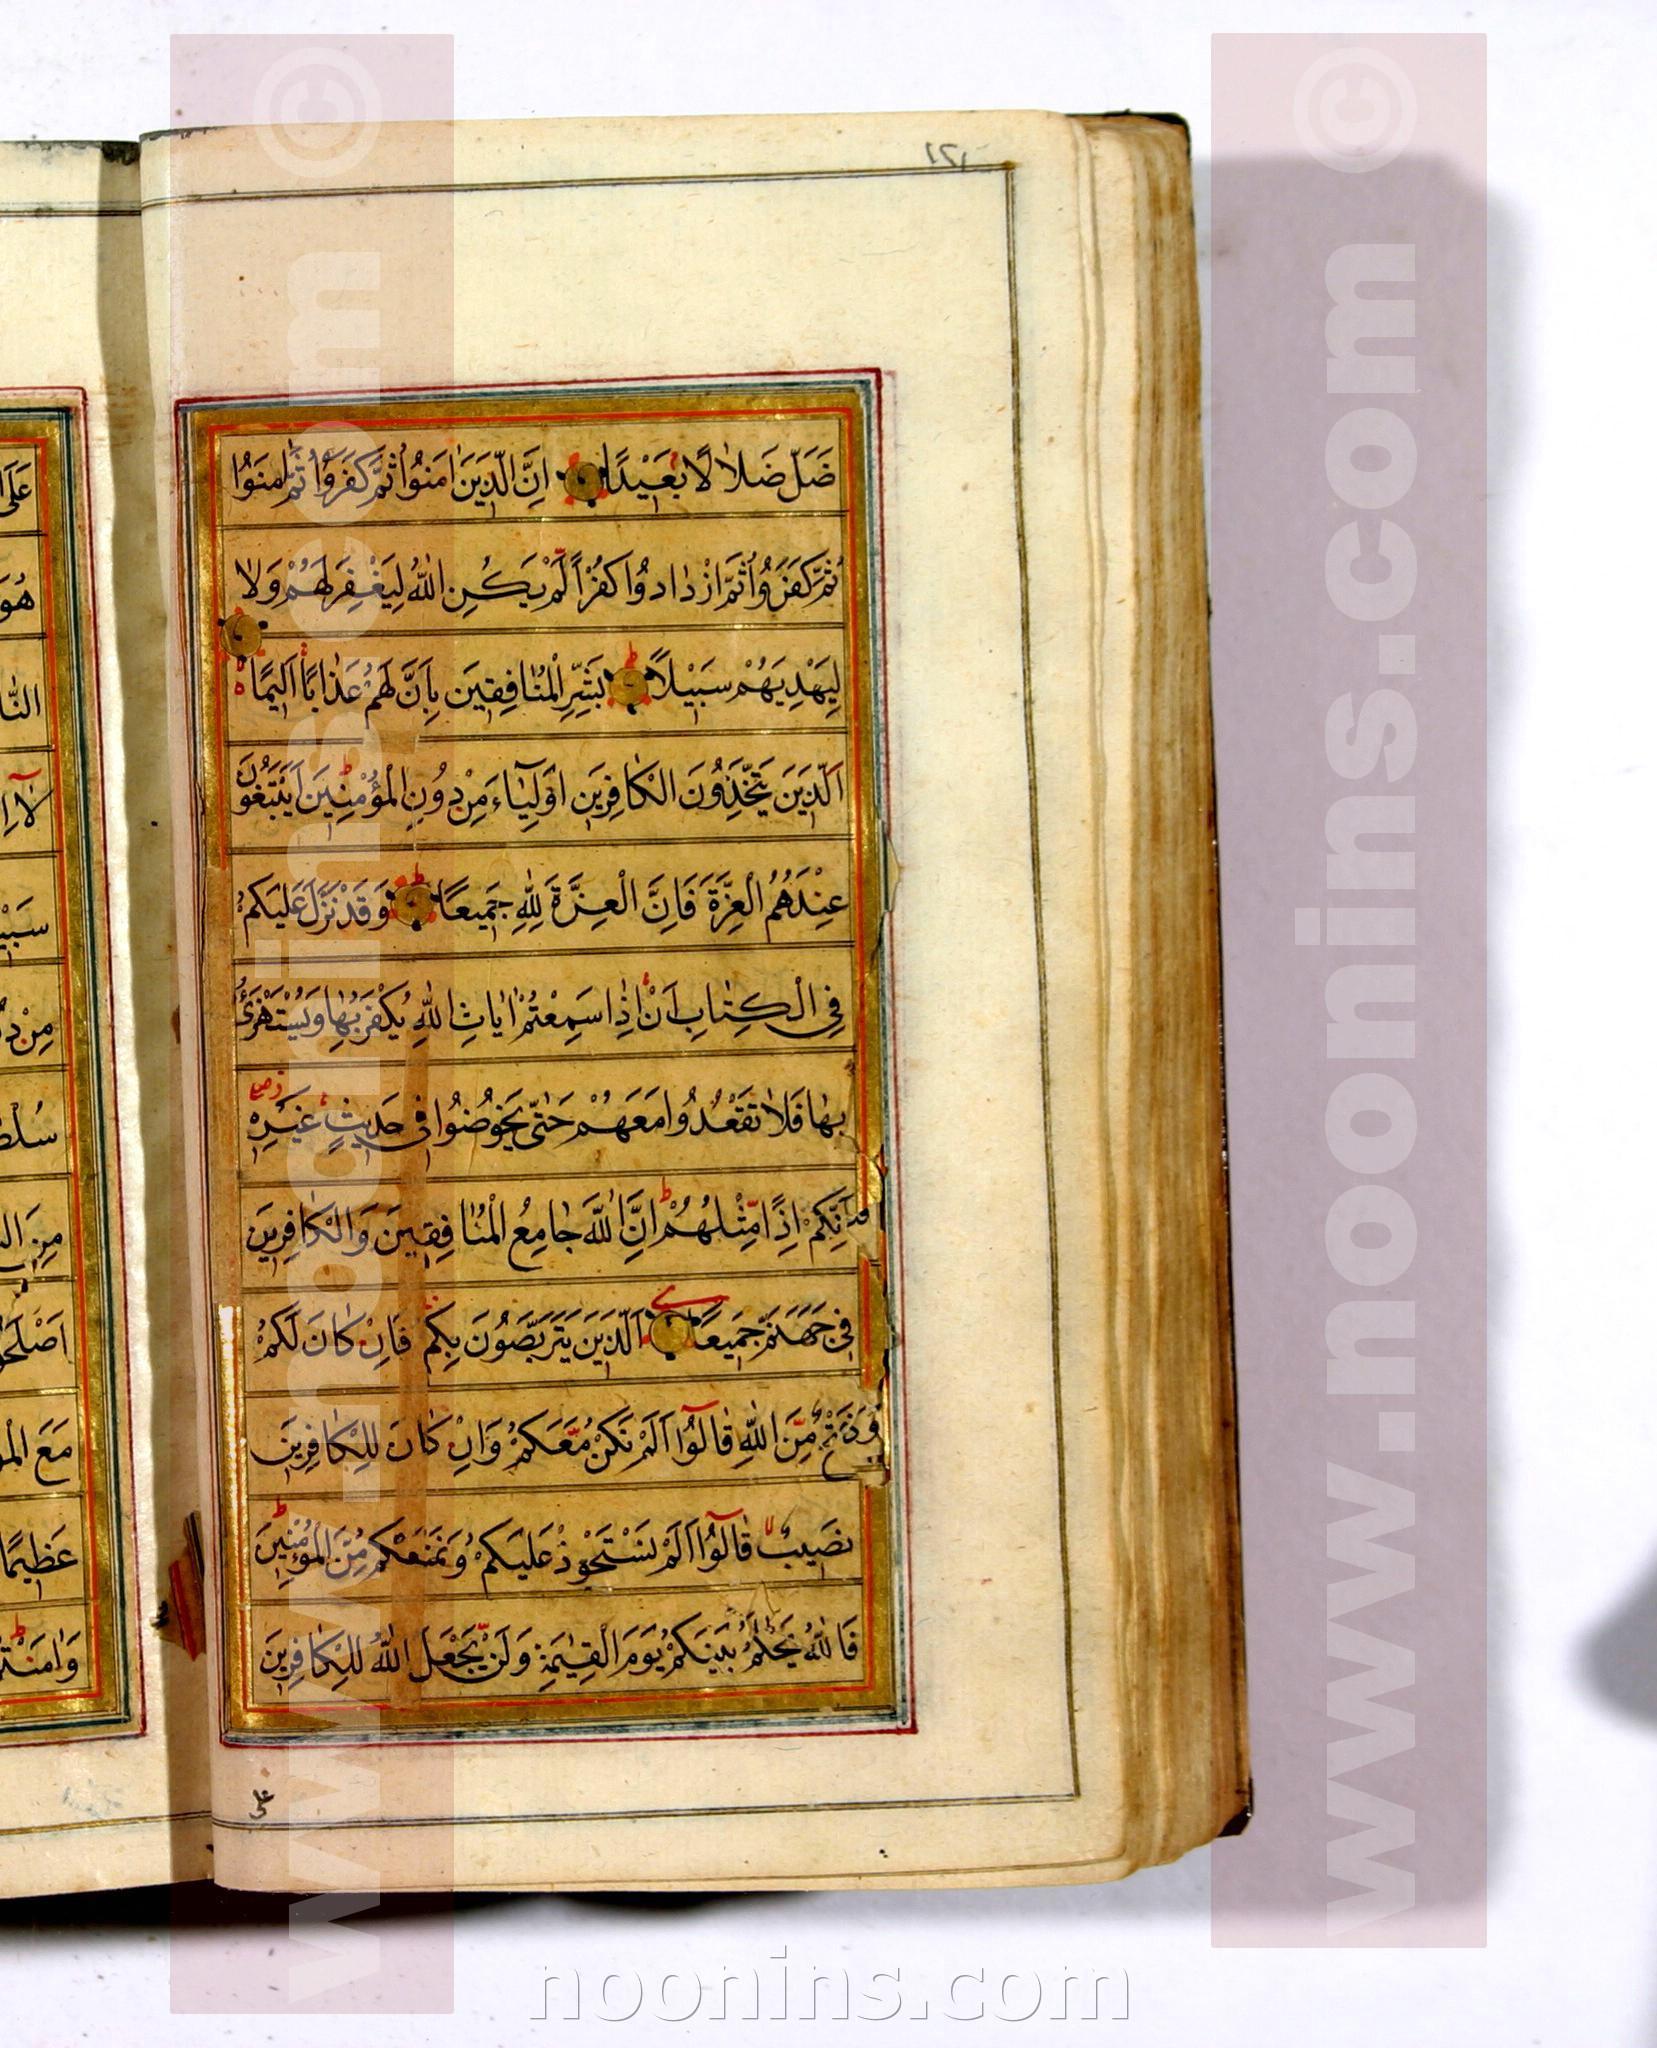 ضَلَّ ضَلَالًا بَعِيدًا اِنَّ الَّذِينَ اٰمَنُوا ثُمَّ كَفَرُوا ثُمَّ اٰمَنُوا
ثُمَّ كَفَرُوا ثُمَّ ازْدَادُوا كُفْرًا لَّمْ يَكُنِ اللّٰهُ لِيَغْفِرَ لَهُمْ وَلَا
لِيَهْدِيَهُمْ سَبِيْلًا ط بَشِّرِ الْمُنٰافِقِينَ بِاَنَّ لَهُمْ عَذٰابًا اَلِيمًا
اَلَّذِينَ يَتَّخِذُونَ الْكٰافِرِينَ اَوْلِيٰٓاءَ مِنْ دُونِ الْمُؤْمِنِينَ ط اَيَبْتَغُونَ
عِنْدَهُمُ الْعِزَّةَ فَاِنَّ الْعِزَّةَ لِلّٰهِ جَمِيعًا ط وَقَدْ نَزَّلَ عَلَيْكُمْ
فِي الْكِتٰابِ اَنْ اِذٰا سَمِعْتُمْ اٰيٰاتِ اللّٰهِ يُكْفَرُ بِهٰا وَيُسْتَهْزَئُ
بِهٰا فَلٰا تَقْعُدُوا مَعَهُمْ حَتّٰى يَخُوضُوا فِي حَدِيثٍ غَيْرِهِ
اِنَّكُمْ اِذًا مِّثْلُهُمْ ط اِنَّ اللّٰهَ جٰامِعُ الْمُنٰافِقِينَ وَالْكٰافِرِينَ
فِي جَهَنَّمَ جَمِيعًا اَلَّذِينَ يَتَرَبَّصُونَ بِكُمْ فَاِنْ كٰانَ لَكُمْ
مِّنَ اللّٰهِ قٰالُوٓا اَلَمْ نَكُنْ مَّعَكُمْ وَاِنْ كٰانَ لِلْكٰافِرِينَ
نَصِيبٌ قٰالُوٓا اَلَمْ نَسْتَحْوِذْ عَلَيْكُمْ وَنَمْنَعْكُمْ مِّنَ الْمُؤْمِنِينَ ط
فَاللّٰهُ يَحْكُمُ بَيْنَكُمْ يَوْمَ الْقِيٰمَةِ وَلَنْ يَّجْعَلَ اللّٰهُ لِلْكٰافِرِينَ
على
www.noonins.com ©
www.noonins.com ©
noonins.com